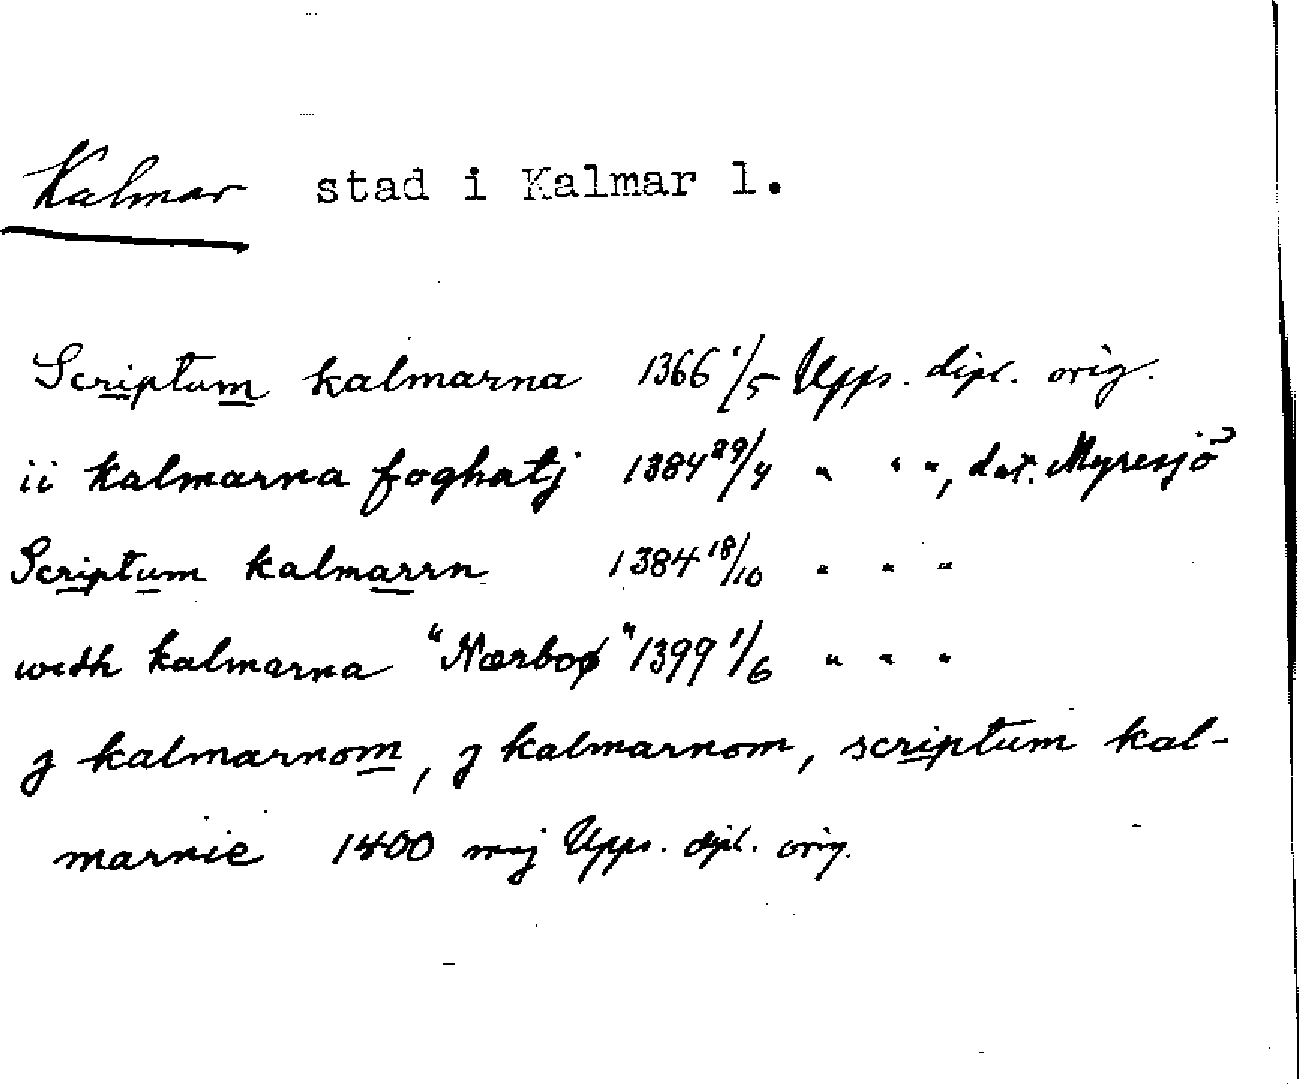 Kalmar stad i Kalmar l.
Scriptum kalmarna 1366 1/5 Upps. dipl. orig.
ii kalmarna foghatj 1384 29/4 " " ", dat. Myresjö
Scriptum kalmarrn 1384 18/10 " " "
widh kalmarna "Nærboø" 1399 1/6 " " "
j kalmarnom, j kalmarnom, scriptum kal-
marnie 1400 maj Upps. dipl. orig.